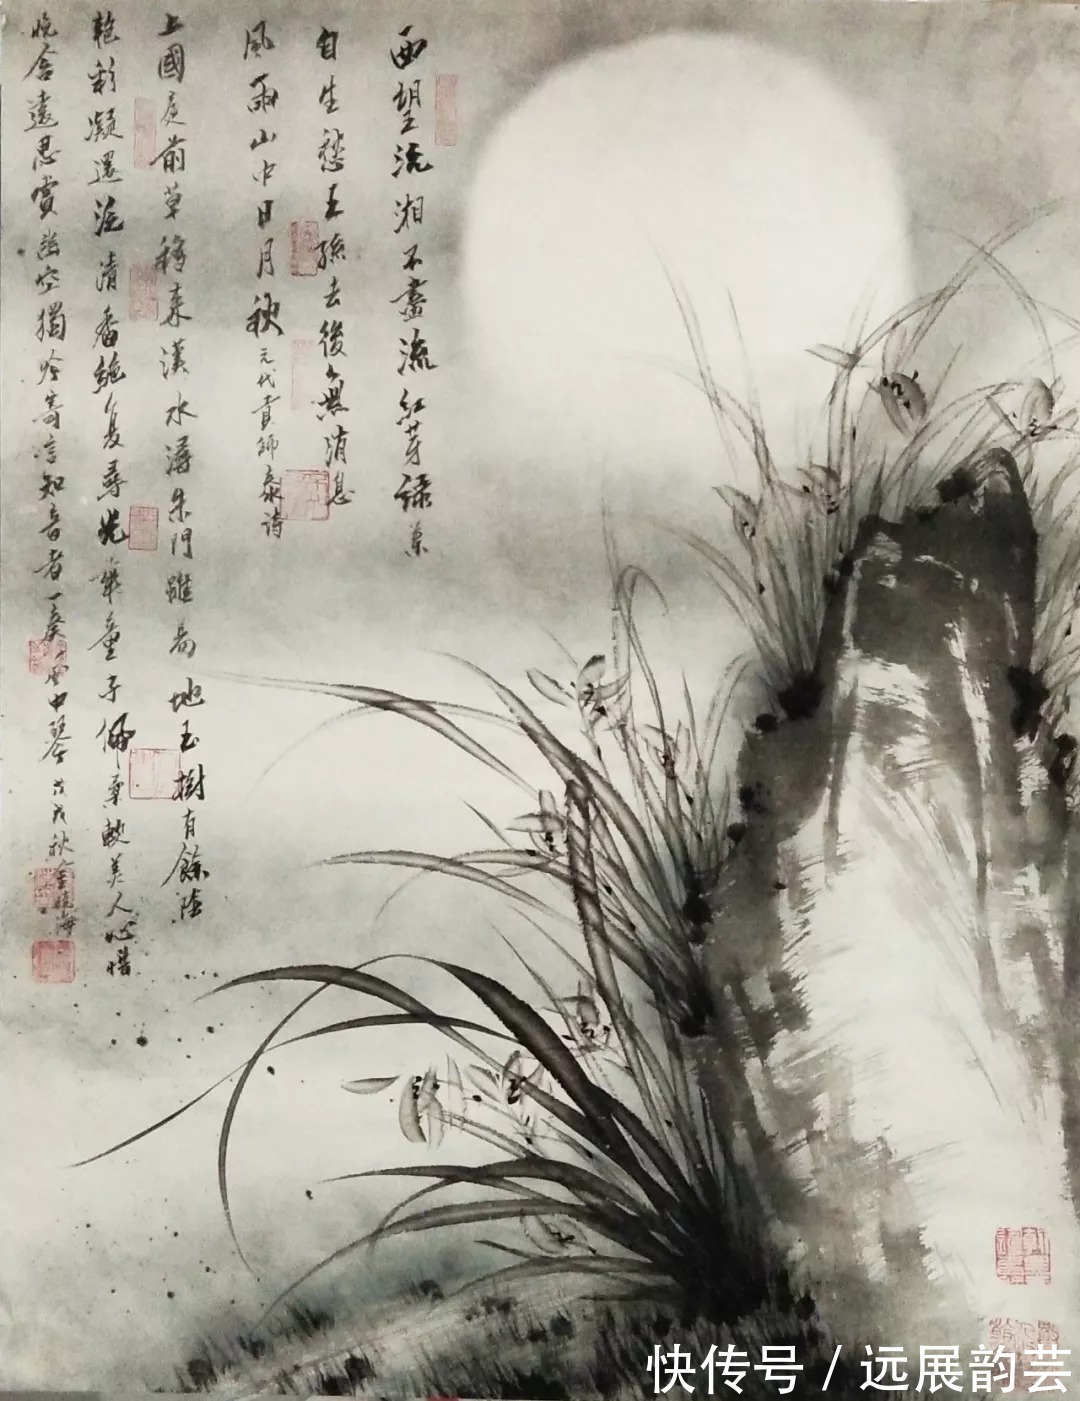 西望沅湘不盡流紅芽綠葉
自生愁王孫去後無消息
風雨山中日月秋元代貢師泰詩
上國庭前草移來漢水潯朱門雖易地玉樹有餘陰
艷彩凝還泛清香絕復尋光華童子佩柔軟美人心惜
晚含遠思賞幽空獨吟寄言知音者一奏風中琴戊戌秋金曉海
快传号 / 远展韵芸